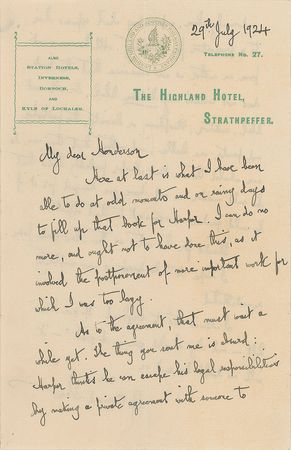 29th July 1924
TELEPHONE No. 27.
ALSO
STATION HOTELS,
INVERNESS,
DORNOCH,
AND
KYLE OF LOCHALSH.
THE HIGHLAND HOTEL,
STRATHPEFFER.
My dear Henderson
Here at last is what I have been
able to do at odd moments and on rainy days
to fill up that book for Harper. I can do no
more, and ought not to have done this, as it
involved the postponement of more important work for
which I was too lazy.
As to the agreement, that must wait a
while yet. The thing you sent me is absurd:
Harper thinks he can escape his legal responsibilities
by making a private agreement with someone to